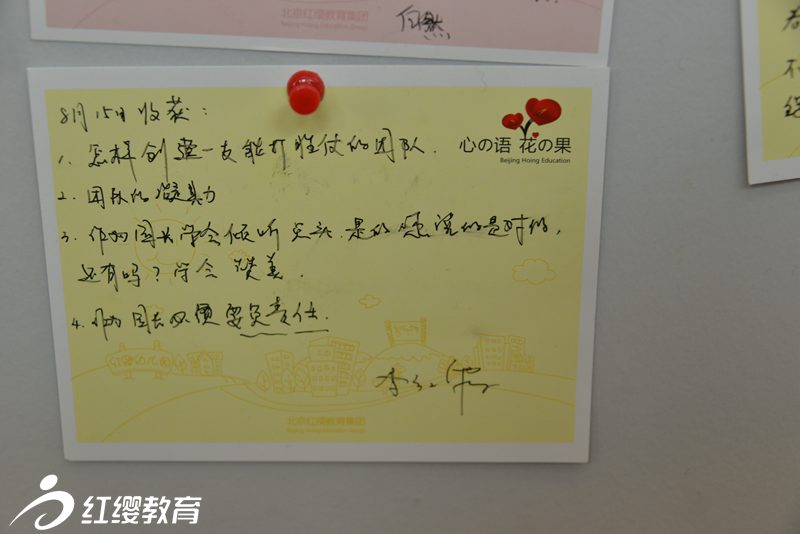 北京红缨教育集团
Beijing Hoing Education Group
自然
8月15日收获：
心の语 花の果
Beijing Hoing Education
1、怎样创造一支能打胜仗的团队.
2. 团队的凝聚力
3. 作为园长学会倾听 点头 是的 您说的是对的,
还有吗？学会 赞美.
4. 作为园长必须要负责任.
红缨幼儿园
北京红缨教育集团
Beijing Hoing Education Group
红缨教育